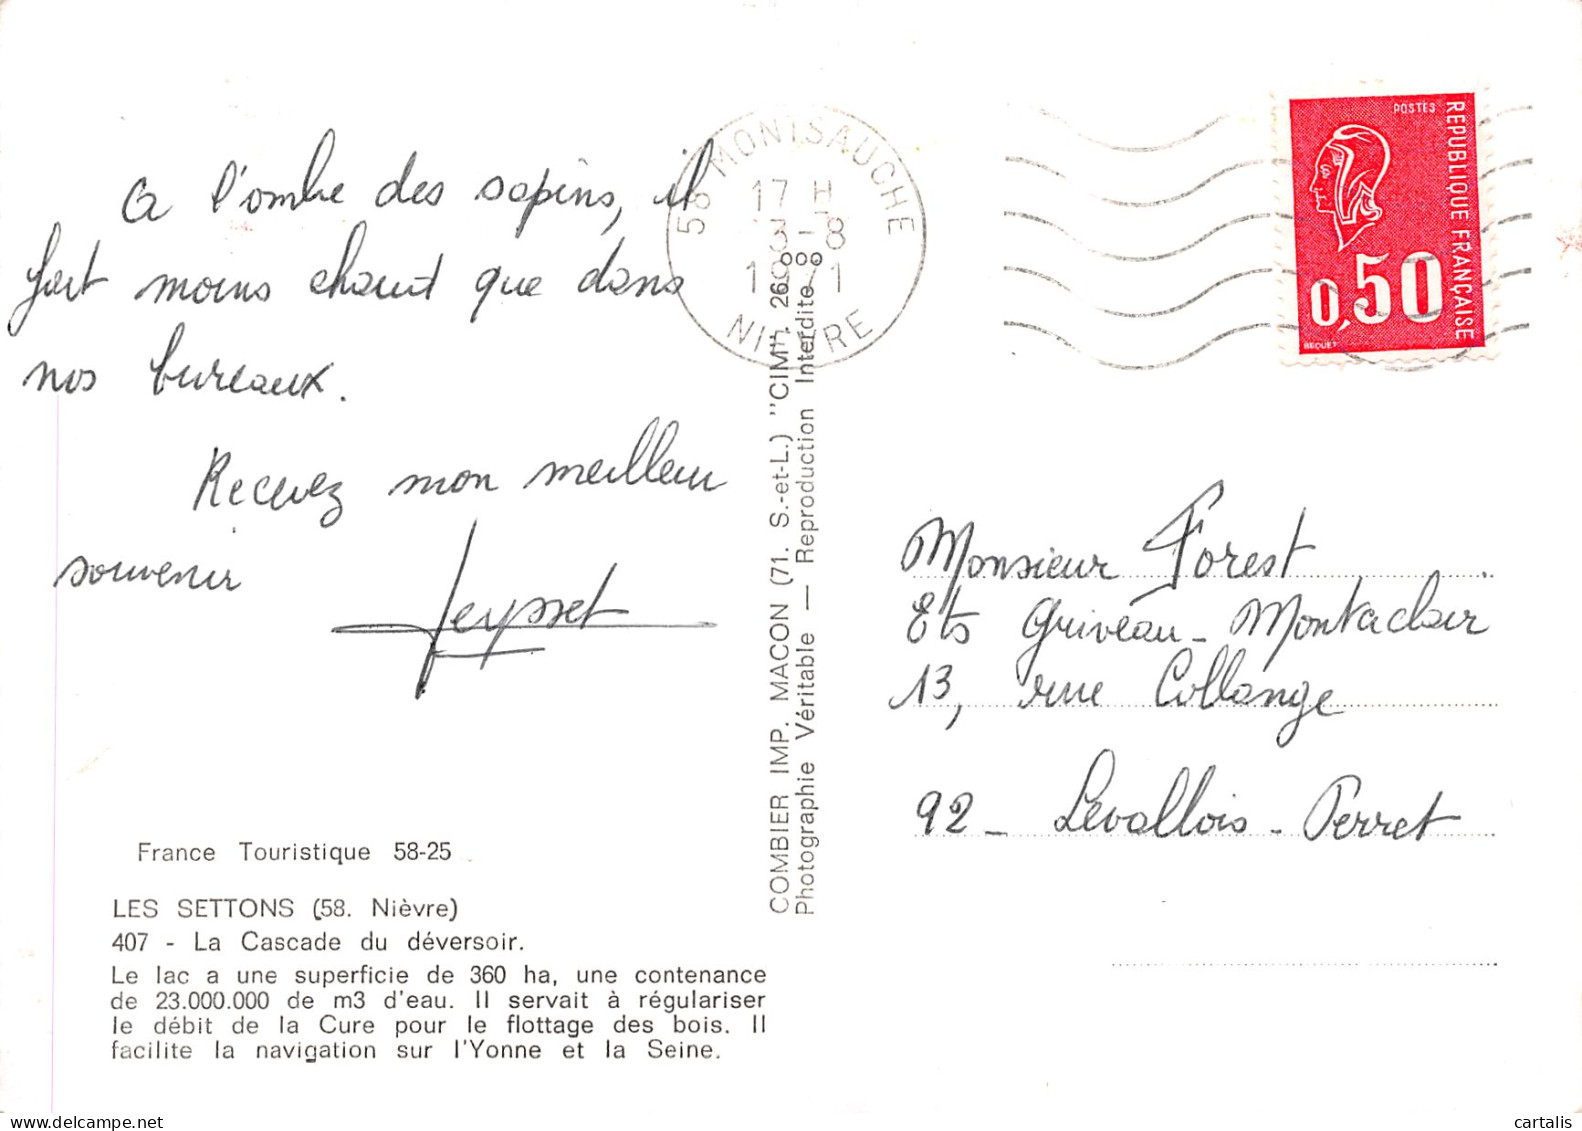 A l'ombre des sapins, il
fait moins chaud que dans
nos bureaux.
Recevez mon meilleur
souvenir
58 MONTSAUCHE
17 H
3-8
1971
NIEVRE
POSTES
REPUBLIQUE FRANÇAISE
0,50
BEQUET
COMBIER IMP. MACON (71. S.-et-L.) "CIM".
Photographie Véritable — Reproduction Interdite
Monsieur Forest
Ets Griveau - Montaclair
13, rue Collange
92 - Levallois - Perret
France Touristique 58-25
LES SETTONS (58. Nièvre)
407 - La Cascade du déversoir.
Le lac a une superficie de 360 ha, une contenance
de 23.000.000 de m3 d'eau. Il servait à régulariser
le débit de la Cure pour le flottage des bois. Il
facilite la navigation sur l'Yonne et la Seine.
delcampe.net
cartalis